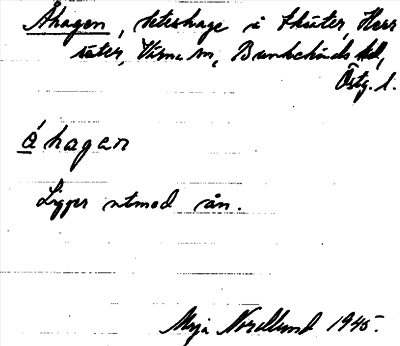 Åhagen, beteshage i Skäter, Herr
säter, Värna sn, Bankekinds hd,
Östg. l.
åhagen
Ligger utmed ån.
Maja Nordlund 1945.